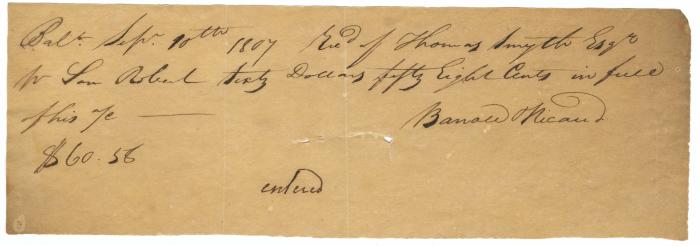 Balt. Sept. 10th 1807 Rec'd of Thomas Smyth Esqr
pr Son Robert Sixty Dollars fifty Eight Cents in full
of his a/c
Ricaud
$60.58
entered